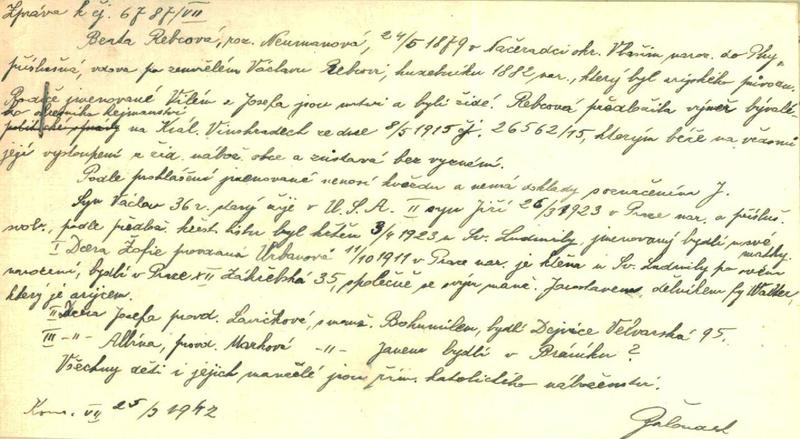 Zpráva k čj. 6787/VII
Berta Rebcová, roz. Neumanová, 24/5 1879 v Načeradci okr. Vlašim naroz. do Prahy
příslušná, vdova po zemřelém Václavu Rebcovi, hudebníku 1882 nar., který byl arijského původu.
Rodiče jmenované Vilém a Josefa jsou mrtvi a byli židé. Rebcová předložila výměr bývalé-
ho okresního hejtmanství
na Král. Vinohradech ze dne 8/5 1915 čj. 26562/15, kterým béře na vědomí
její vystoupení z žid. nábož. obce a zůstává bez vyznání.
Podle prohlášení jmenovaná nenosí hvězdu a nemá doklady s označením J.
Syn Václav 36 r. starý žije v U.S.A. II syn Jiří 26/3 1923 v Praze nar. a přísluš.
svob., podle předlož. křest. listu byl křtěn 3/4 1923 u Sv. Ludmily, jmenovaný bydlí u své
matky.
I Dcera Žofie provdaná Urbanová 11/10 1911 v Praze nar. je křtěna u Sv. Ludmily po
narození, bydlí v Praze XII Záhřebská 35, společně se svým manž. Jaroslavem dělníkem fy Walter,
který je arijcem.
II Dcera Josefa provd. Lavičková, s manž. Bohumilem, bydlí Dejvice Velvarská 95.
III -"- Albína, provd. Marková -"- Janem bydlí v Braníku ?
Všechny děti i jejich manželé jsou řím. katolického náboženství.
Kom. VII 25/3 1942